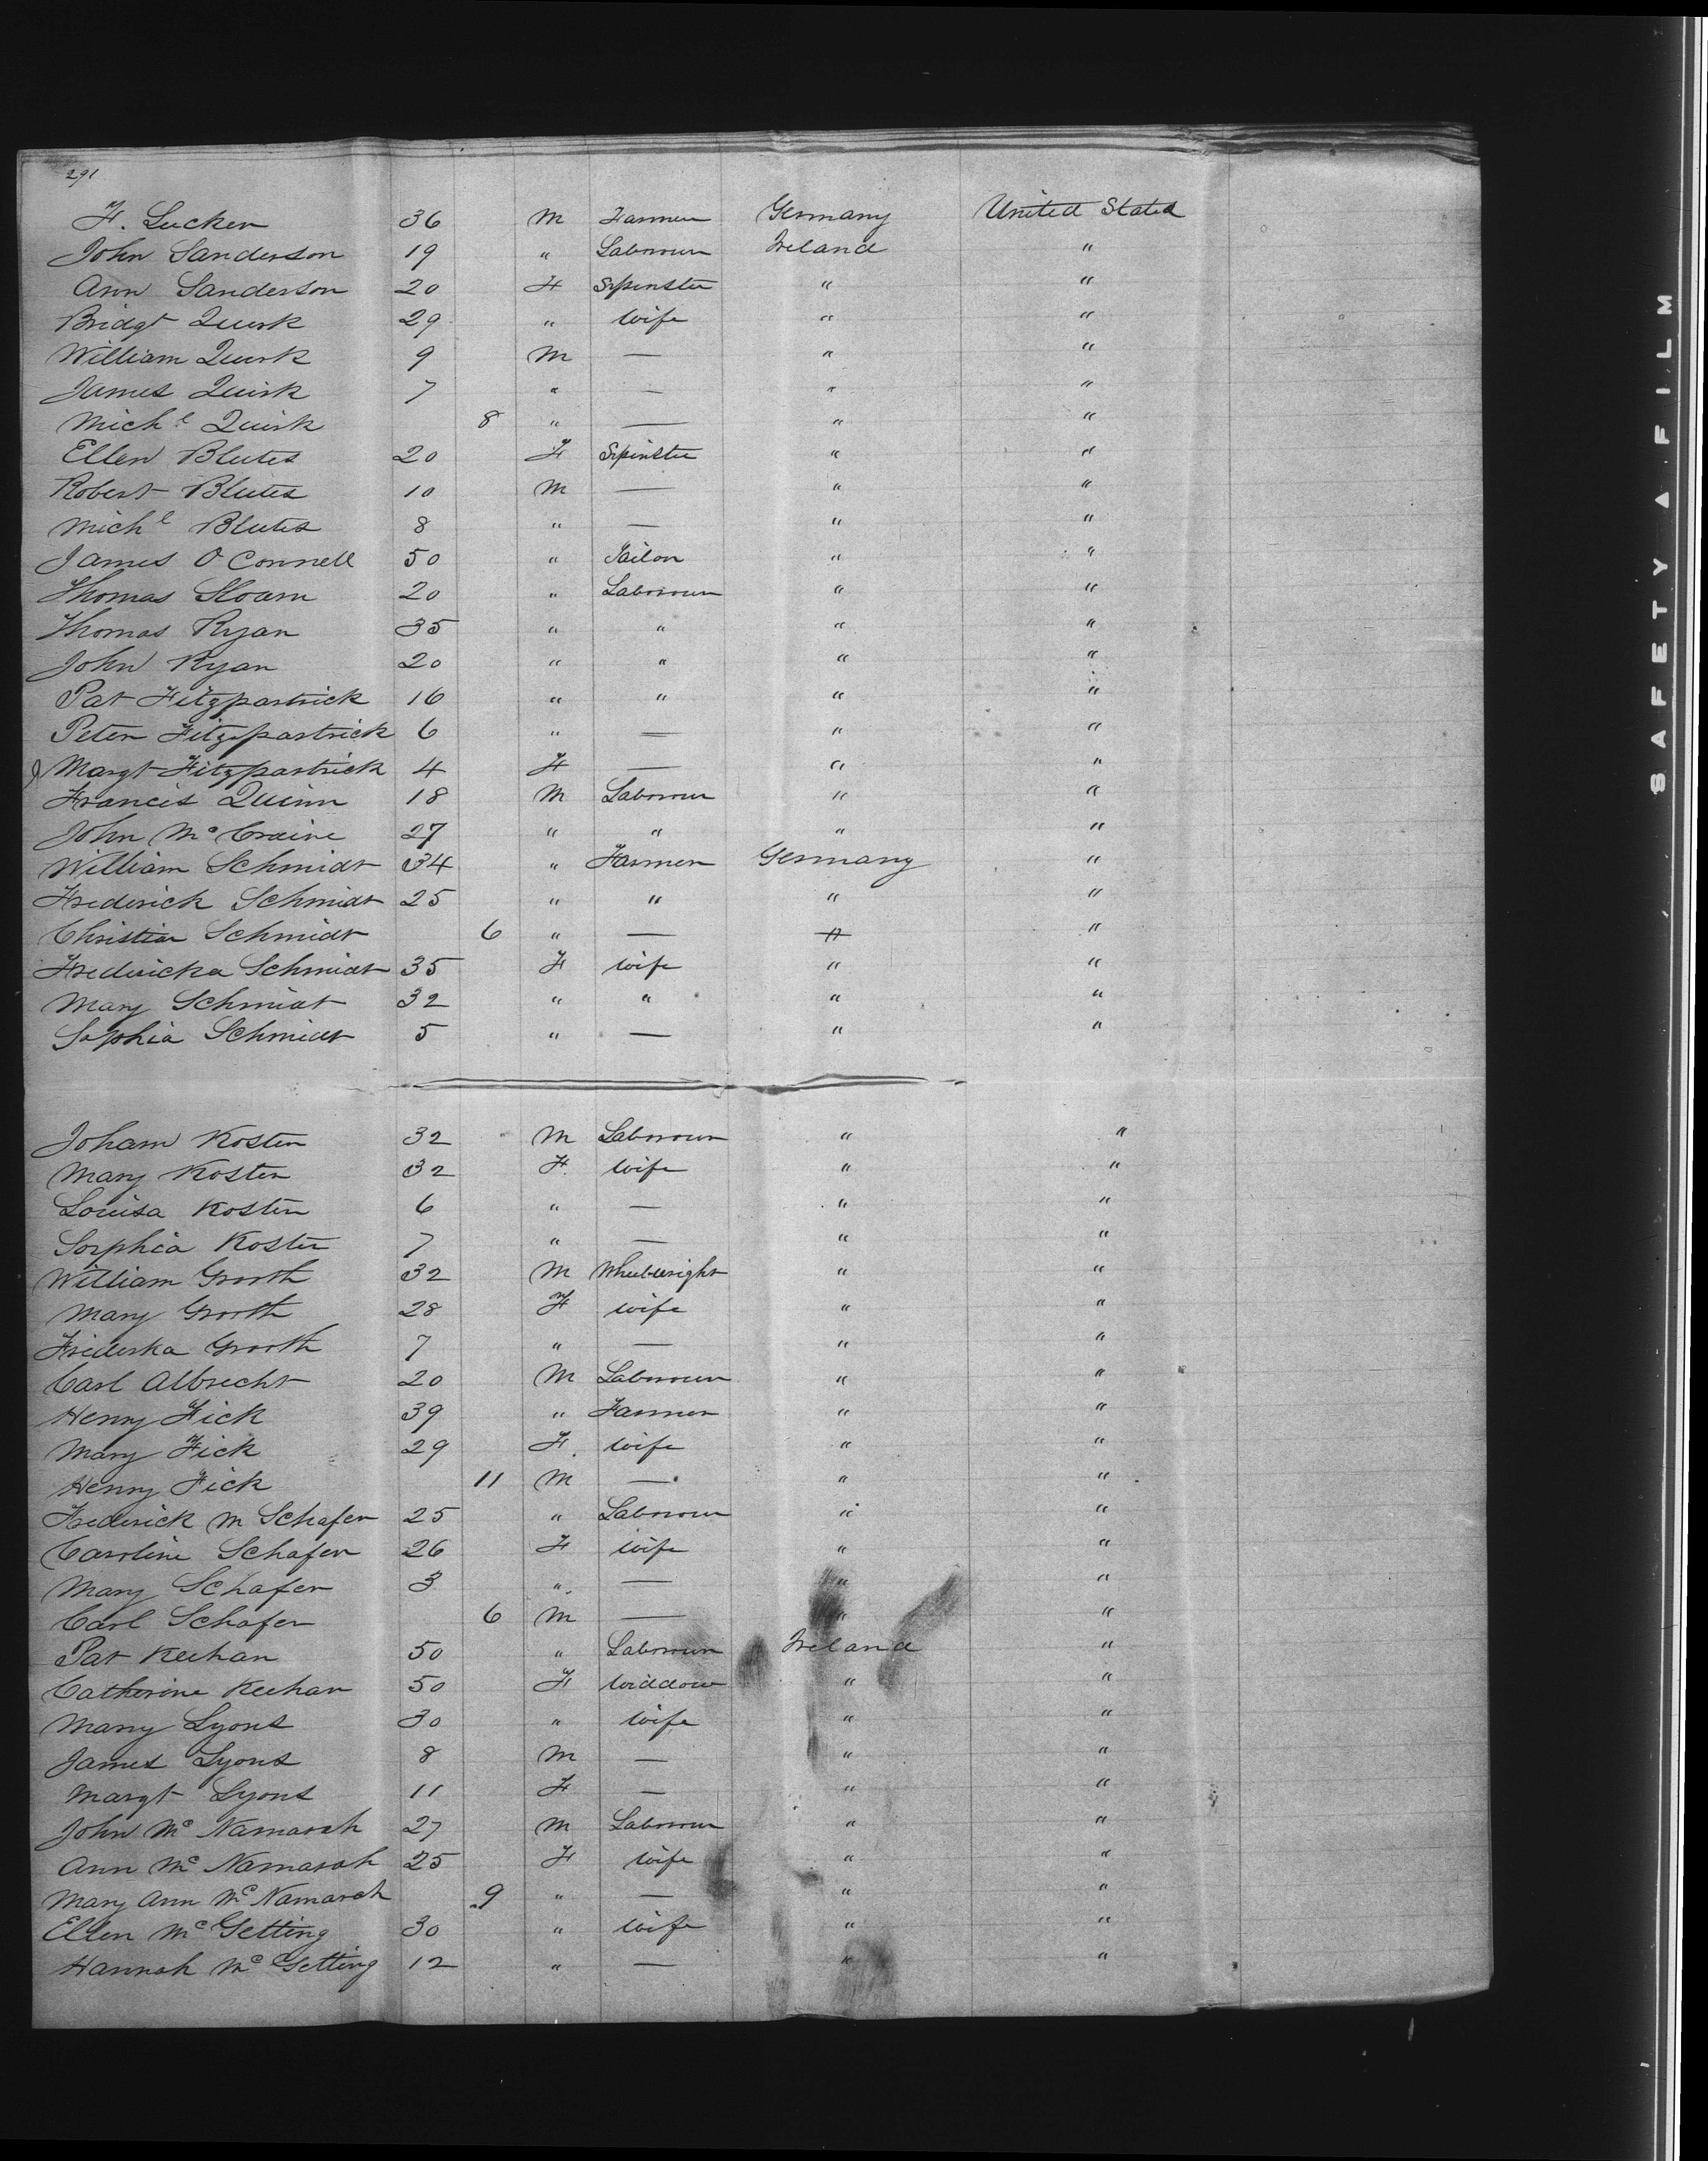 291
F. Lucker 36 M Farmer Germany United States
John Sanderson 19 " Labourer Ireland "
Ann Sanderson 20 F Spinster " "
Bridgt Quirk 29 " Wife " "
William Quirk 9 M — " "
James Quirk 7 " — " "
Michl Quirk 8 " — " "
Ellen Blutes 20 F Spinster " "
Robert Blutes 10 M — " "
Michl Blutes 8 " — " "
James O Connell 50 " Tailor " "
Thomas 20 " Labourer " "
Thomas Ryan 35 " " " "
John Ryan 20 " " " "
Pat Fitzpartrick 16 " " " "
Peter Fitzpartrick 6 " — " "
Margt Fitzpartrick 4 F — " "
Francis Quinn 18 M Labourer " "
John Mc Craine 27 " " " "
William Schmidt 34 " Farmer Germany "
Frederick Schmidt 25 " " " "
Christian Schmidt 6 " — " "
Fredericka Schmidt 35 F Wife " "
Mary Schmidt 32 " " " "
Sophia Schmidt 5 " — " "
Joham Koster 32 M Labourer " "
Mary Koster 32 F Wife " "
Louisa Koster 6 " — " "
Sorphia Koster 7 " — " "
William Grooth 32 M Wheelwright " "
Mary Grooth 28 F Wife " "
Friderka Grooth 7 " — " "
Carl Albrecht 20 M Labourer " "
Henry Fick 39 " Farmer " "
Mary Fick 29 F. Wife " "
Henry Fick 11 M — " "
Frederick M Schafer 25 " Labourer " "
Caroline Schafer 26 F Wife " "
Mary Schafer 3 " — " "
Carl Schafer 6 M — " "
Pat Keehan 50 " Labourer Ireland "
Catherine Keehan 50 F Widdow " "
Mary Lyons 30 " Wife " "
James Lyons 8 M — " "
Margt Lyons 11 F — " "
John Mc Namarah 27 M Labourer " "
Ann Mc Namarah 25 F Wife " "
Mary Ann Mc Namarah 9 " — " "
Ellen Mc Getting 30 " Wife " "
Hannah Mc Getting 12 " — " "
SAFETY A FILM